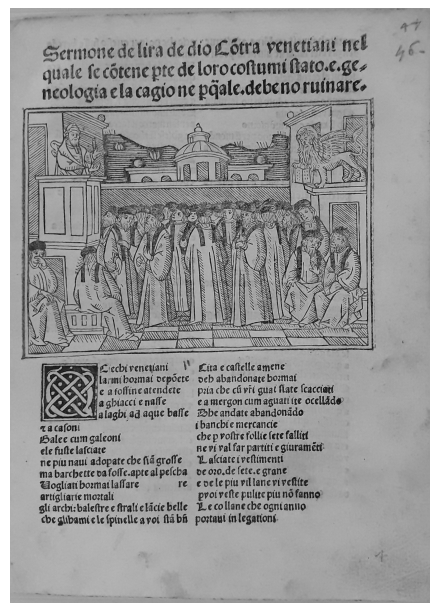 Sermone de lira de dio Cōtra venetiani nel
quale se cōtene pte de loro costumi stato.e.ge-
neologia e la cagio ne pq̄ale.debeno ruinare.
46-
Ciechi venetiani
larmi hormai depōete
e a fossine atendete
a ghiacci e nasse
a laghi ad aque basse
τ a casoni
Galee cum galeoni
ele fuste lasciate
ne piu naui adopate che siā grosse
ma barchette da fosse.apte al pescha
Uogliati hormai lassare re
artigliarie mortali
gli archi: balestre e strali e lācie belle
che glibami e le spinelle a voi stā bn̄
Cita e castelle amene
deh abandonate hormai
pria che cū vr̄i guai siate scacciati
e a mergon cum aguati ite ocellādo
Dhe andate abandonādo
i banchi e mercancie
che p vostre follie sete falliti
ne vi val far partiti e giuramēti
Lasciate i vestimenti
de oro.de sete.e grane
e de le piu vil lane vi vestite
p voi veste pulite piu nō fanno
Le collane che ogni anno
portaui in legationi